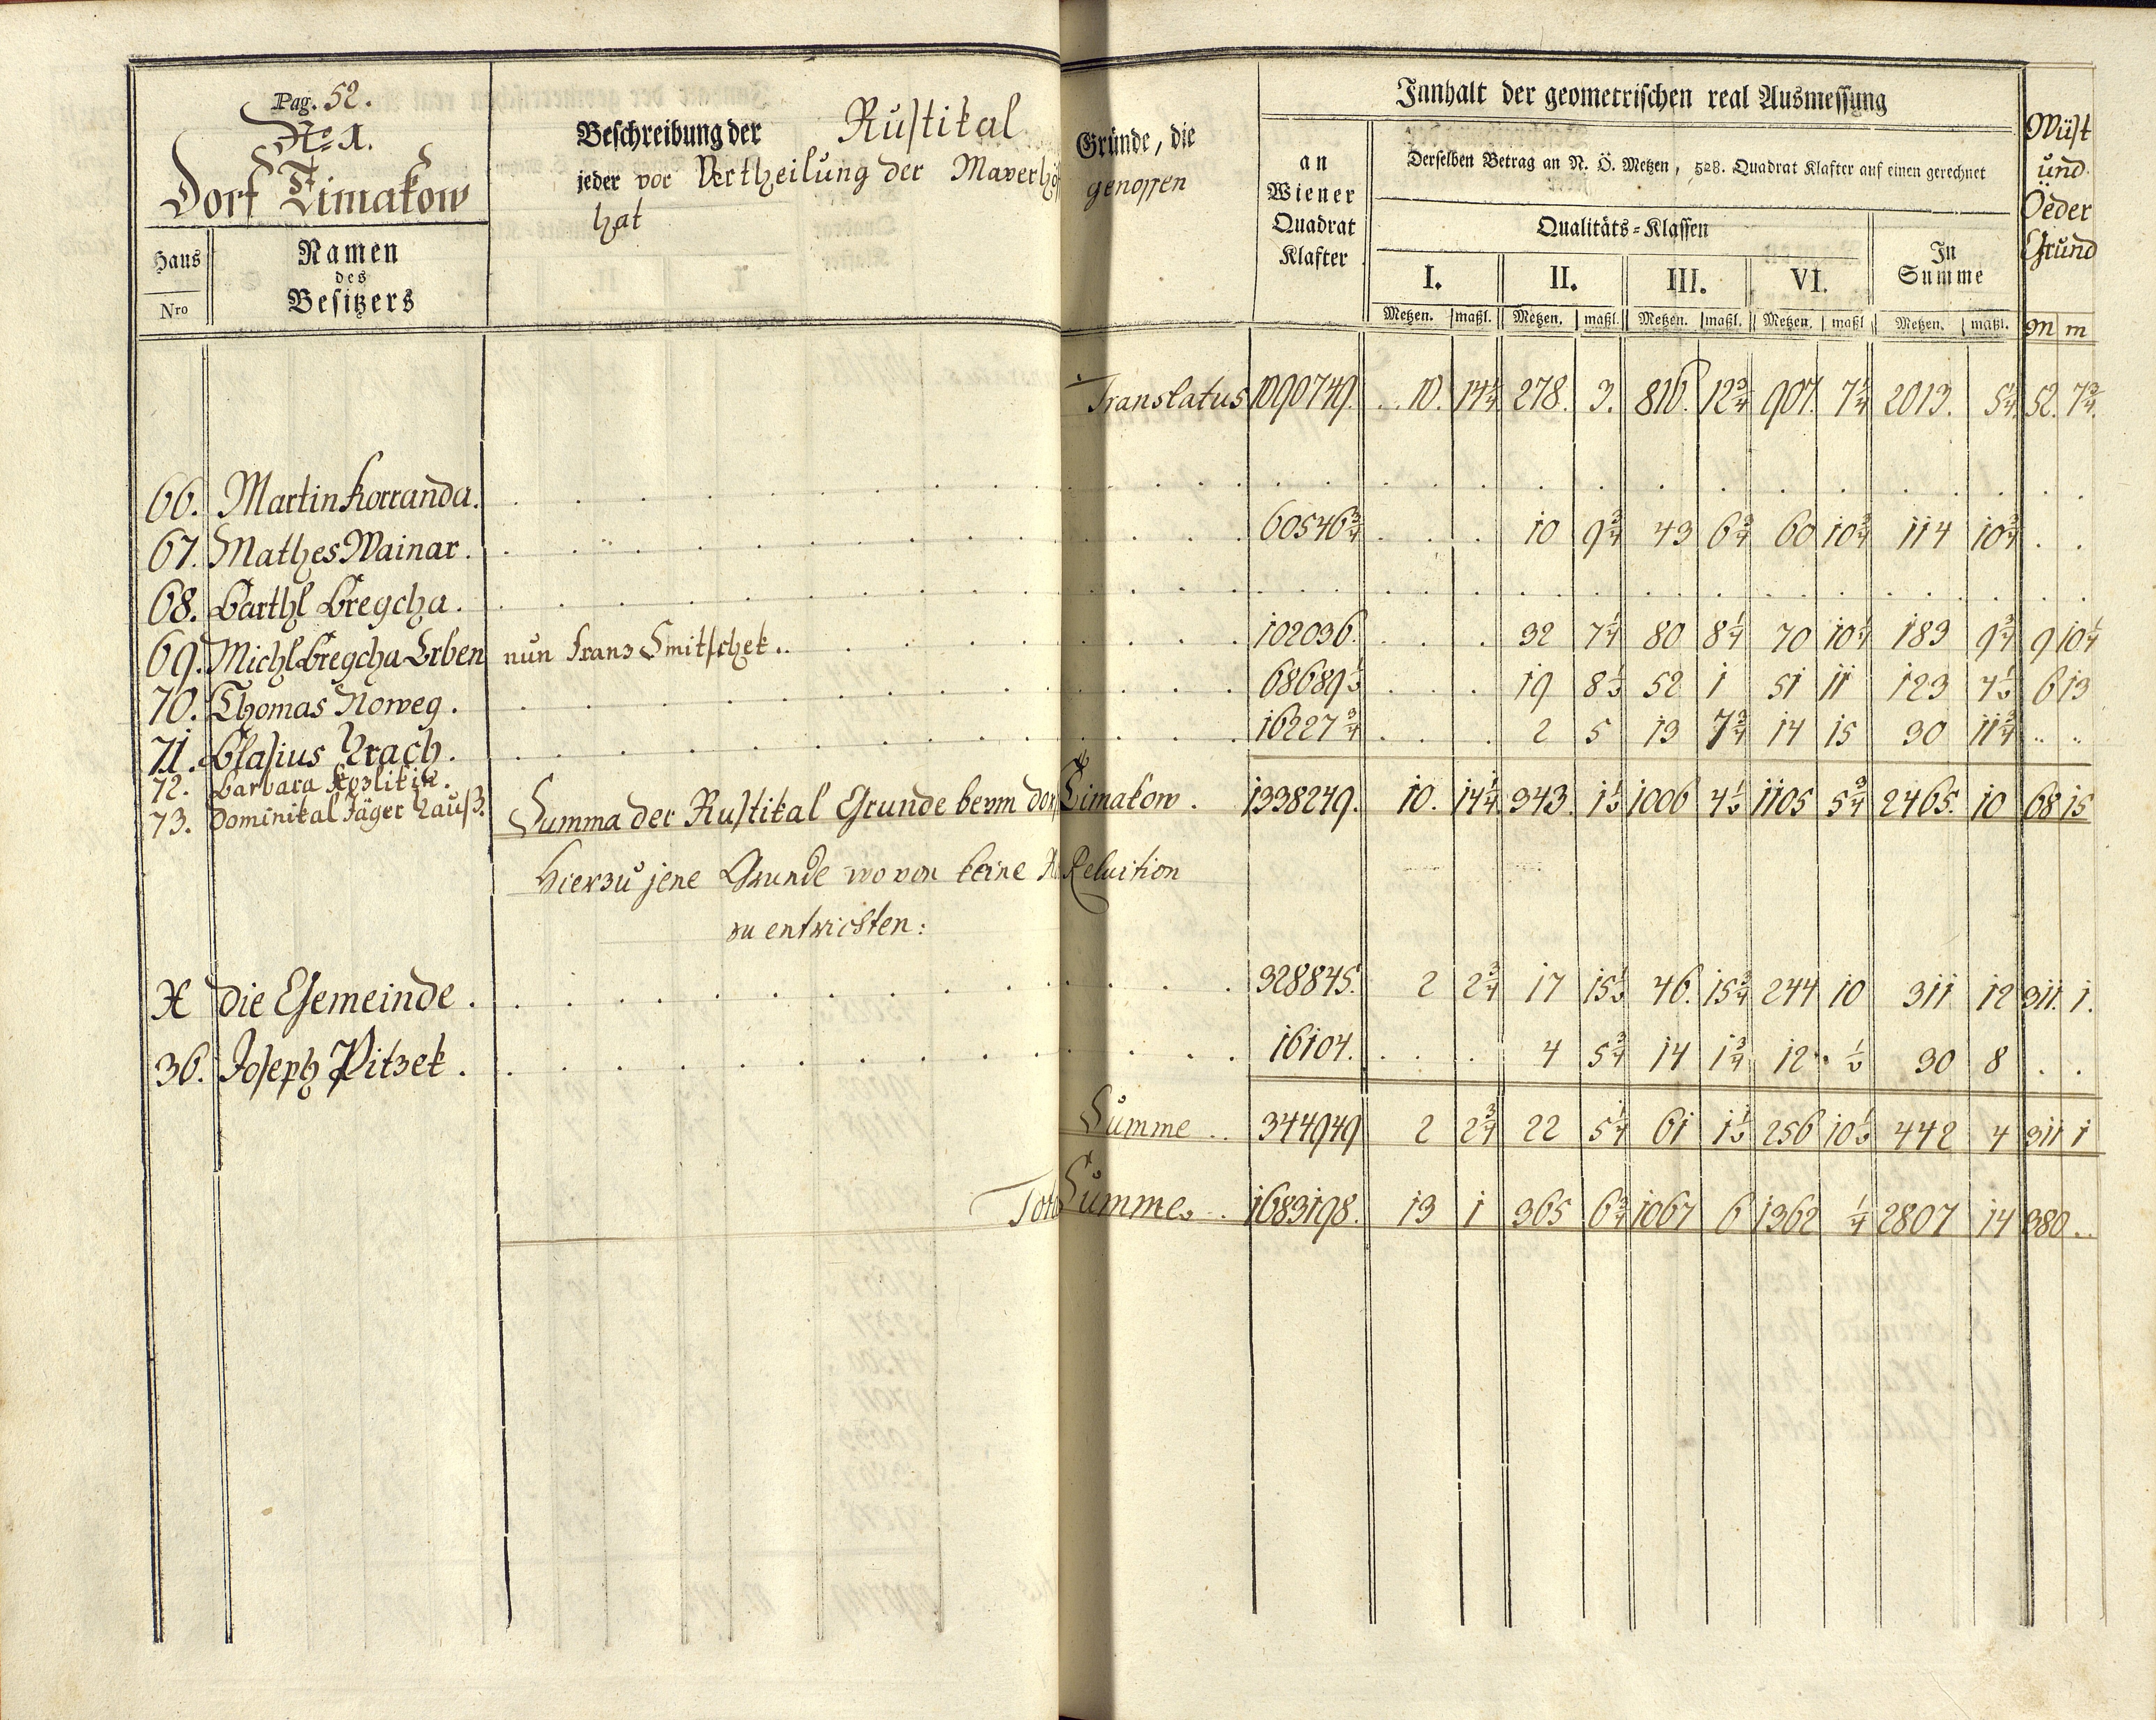 Pag. 52.
No. 1.
Dorf Timakow
Haus Nro
Namen des Besitzers
Beschreibung der Rustital Gründe, die
jeder vor Vertheilung der Mayerhöf genossen
hat
Innhalt der geometrischen real Ausmessung
an Wiener Quadrat Klafter
Derselben Betrag an N. Ö. Metzen, 528. Quadrat Klafter auf einen gerechnet
Qualitäts-Klassen
I. II. III. VI. In Summe
Metzen. maßl. Metzen. maßl. Metzen. maßl. Metzen. maßl Metzen. maßl.
Wüst und Oeder Grund
M m
Translatus 1090749. 10. 14 1/4 278. 3. 816. 12 3/4 907. 7 1/4 2013. 5 1/4 52. 7 3/4
66. Martin Korranda.
67. Mathes Wainar. 60546 3/4 10 9 3/4 43 6 3/4 60 10 3/4 114 10 3/4
68. Barthl Bregcha.
69. Michl Bregcha Erben nun Franz Smitschek.. 102036. 32 7 1/4 80 8 1/4 70 10 1/4 183 9 3/4 9 10 1/4
70. Thomas Noweg. 68689 1/2 19 8 1/2 52 1 51 11 123 4 1/2 6 13
71. Blasius Krach. 16227 3/4 2 5 13 7 3/4 14 15 30 11 3/4
72. Barbara Kozlikin.
73. Dominikal Jäger Hauß.
Summa der Rustikal Grunde beym dorf Timakow. 1338249. 10. 14 1/4 343. 1 1/2 1006 4 1/2 1105 5 3/4 2465. 10 68 15
Hierzu jene Grunde wo von keine Reluition
zu entrichten:
X die Gemeinde. 328845. 2 2 3/4 17 15 1/2 46. 15 3/4 244 10 311 12 311. 1.
36. Joseph Pitzek. 16104. 4 5 3/4 14 1 3/4 12 . 1/2 30 8
Summe .. 344949 2 2 3/4 22 5 1/4 61 1 1/2 256 10 1/2 442 4 311 1
Tota Summe. 1683198. 13 1 365 6 3/4 1067 6 1362 1/4 2807 14 380 ..